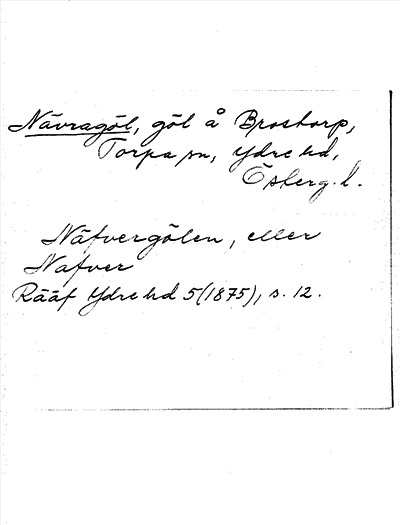 Nävragöl, göl å Brostorp,
Torpa sn, Ydre hd,
Österg. l.
Näfvergölen, eller
Nafver
Rääf Ydre hd 5(1875), s. 12.